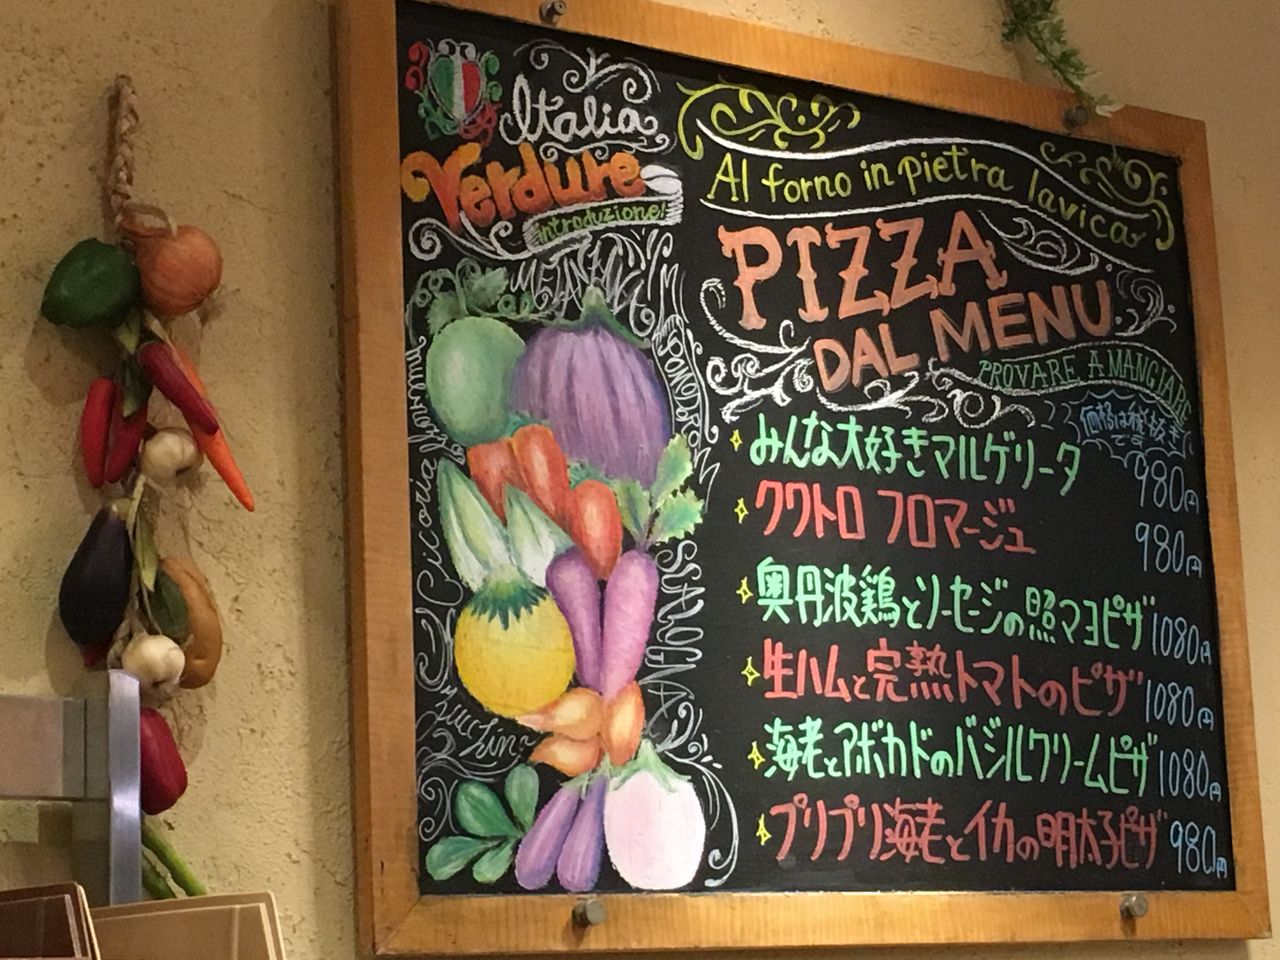 Italia
Verdure
introduzione!
Al forno in pietra lavica
PIZZA
DAL MENU
PROVARE A MANGIARE
価格は税抜き
です
みんな大好きマルゲリータ 980円
クワトロ フロマージュ 980円
奥丹波鶏とソーセージの照マヨピザ 1080円
生ハムと完熟トマトのピザ 1080円
海老とアボカドのバジルクリームピザ 1080円
プリプリ海老とイカの明太子ピザ 980円